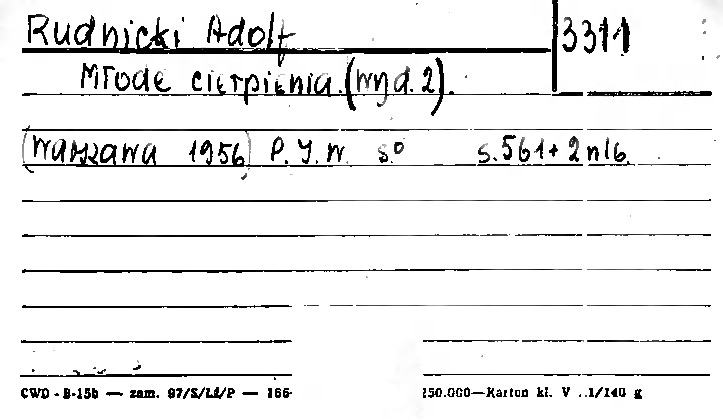 Rudnicki Adolf 3311
Młode cierpienia. (wyd. 2).
(Warszawa 1956) P.I.W. 8° s. 561 + 2 nlb
CWD - B-15b — zam. 97/S/Lł/P — 166- 250.000—Karton kl. V ..1/140 g